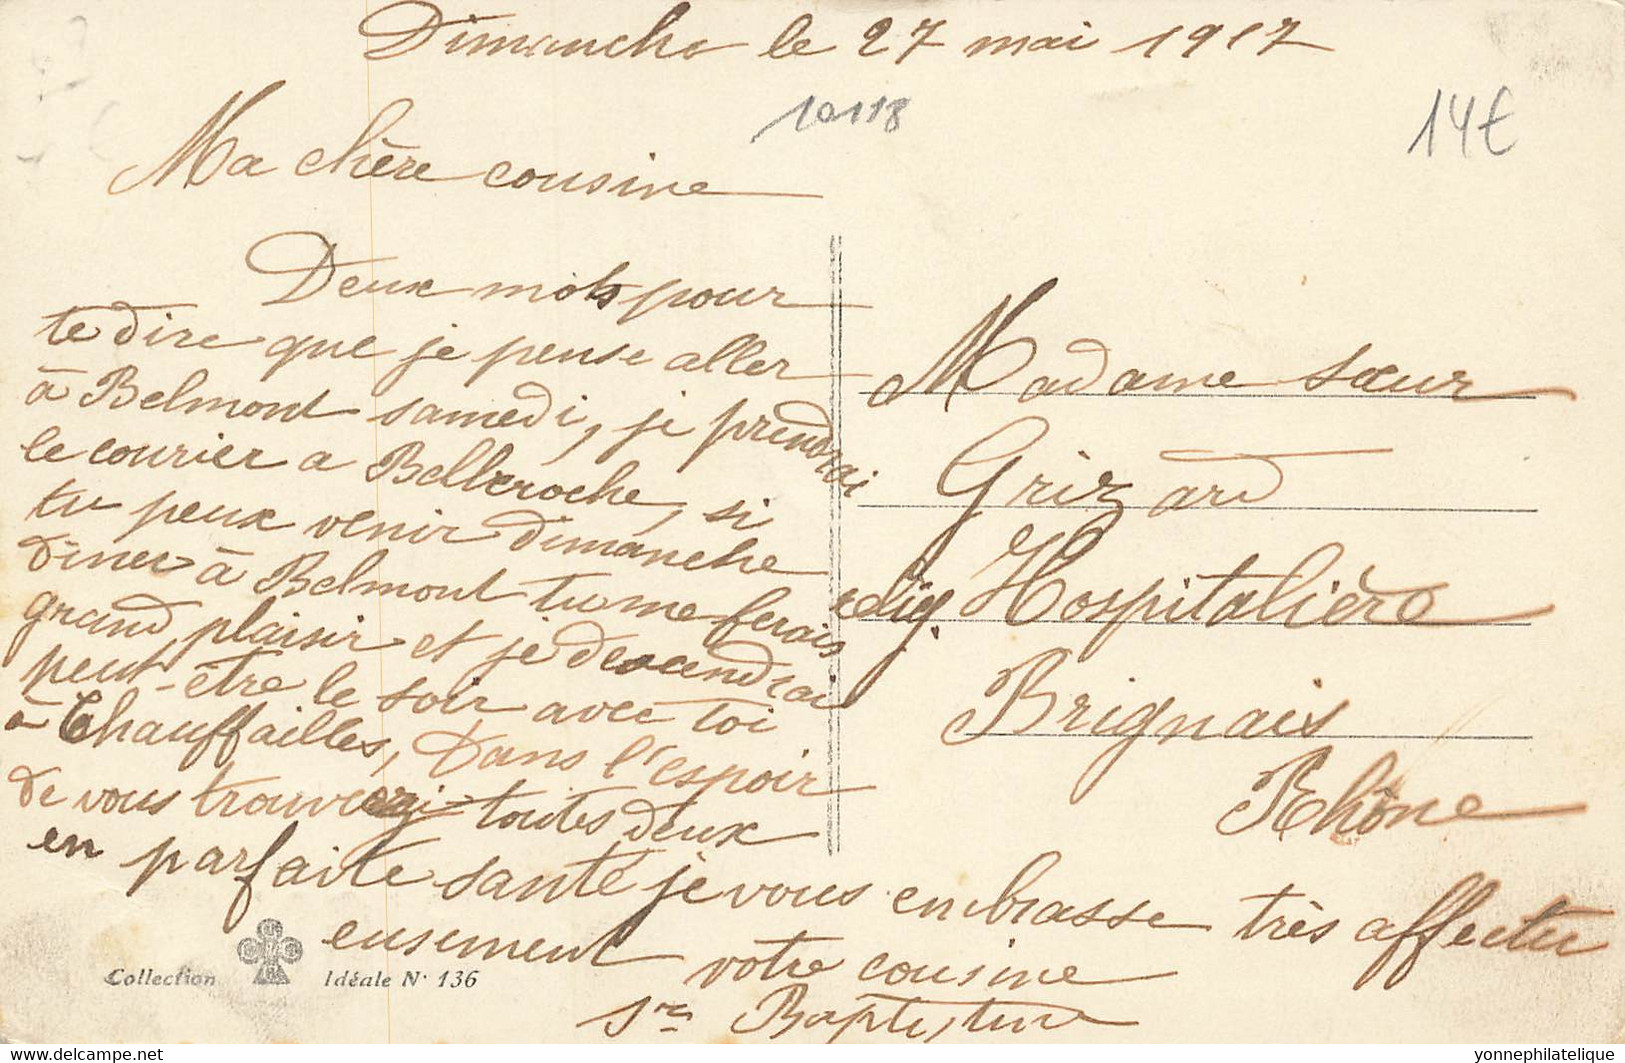 Dimanche le 27 mai 1917
10118
14€
Ma chère cousine
Deux mots pour
te dire que je pense aller
à Belmont samedi, je prendrai
le courier a Belleroche, si
tu peux venir dimanche
diner à Belmont tu me ferais
grand plaisir et je descendrai
peut-être le soir avec toi
à Chauffailles, Dans l'espoir
de vous trouver toutes deux
en parfaite santé je vous embrasse très affectu
eusement
votre cousine
Sr Baptistine
Madame sœur
Grizard
relig. Hospitalière
Brignais
Rhône
Collection Idéale N° 136
delcampe.net
yonnephilatelique